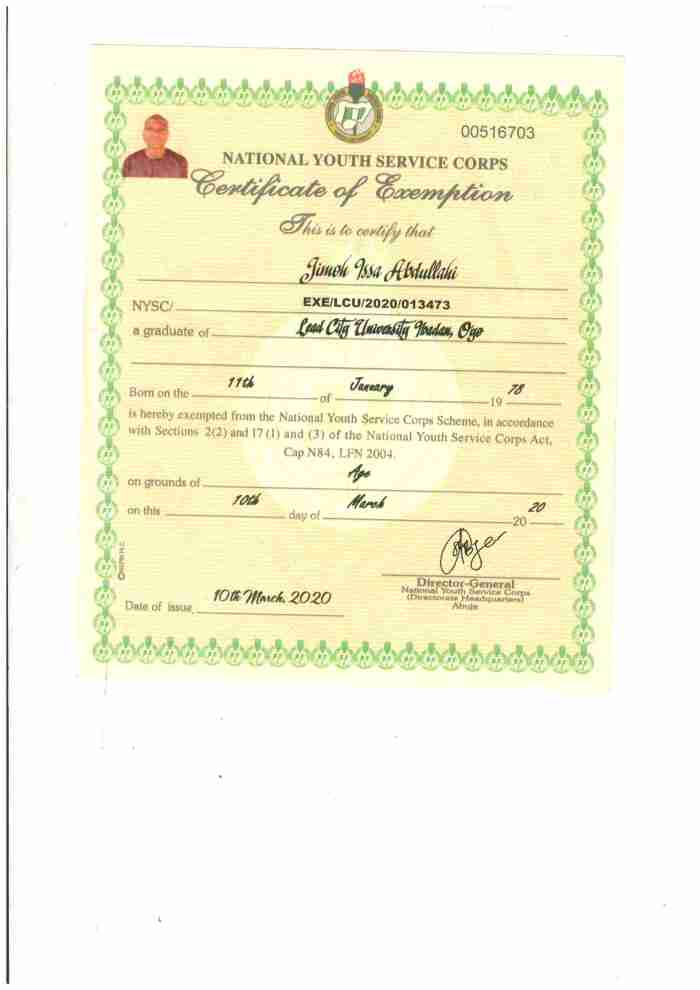 00516703
NATIONAL YOUTH SERVICE CORPS
Certificate of Exemption
This is to certify that
Jimoh Issa Abdullahi
NYSC/ EXE/LCU/2020/013473
a graduate of Lead City University Ibadan, Oyo
Born on the 11th of January 19 78
is hereby exempted from the National Youth Service Corps Scheme, in accordance
with Sections 2(2) and 17 (1) and (3) of the National Youth Service Corps Act,
Cap N84, LFN 2004.
on grounds of Age
on this 10th day of March 20 20
Director-General
National Youth Service Corps
(Directorate Headquarters)
Abuja
Date of issue 10th March, 2020